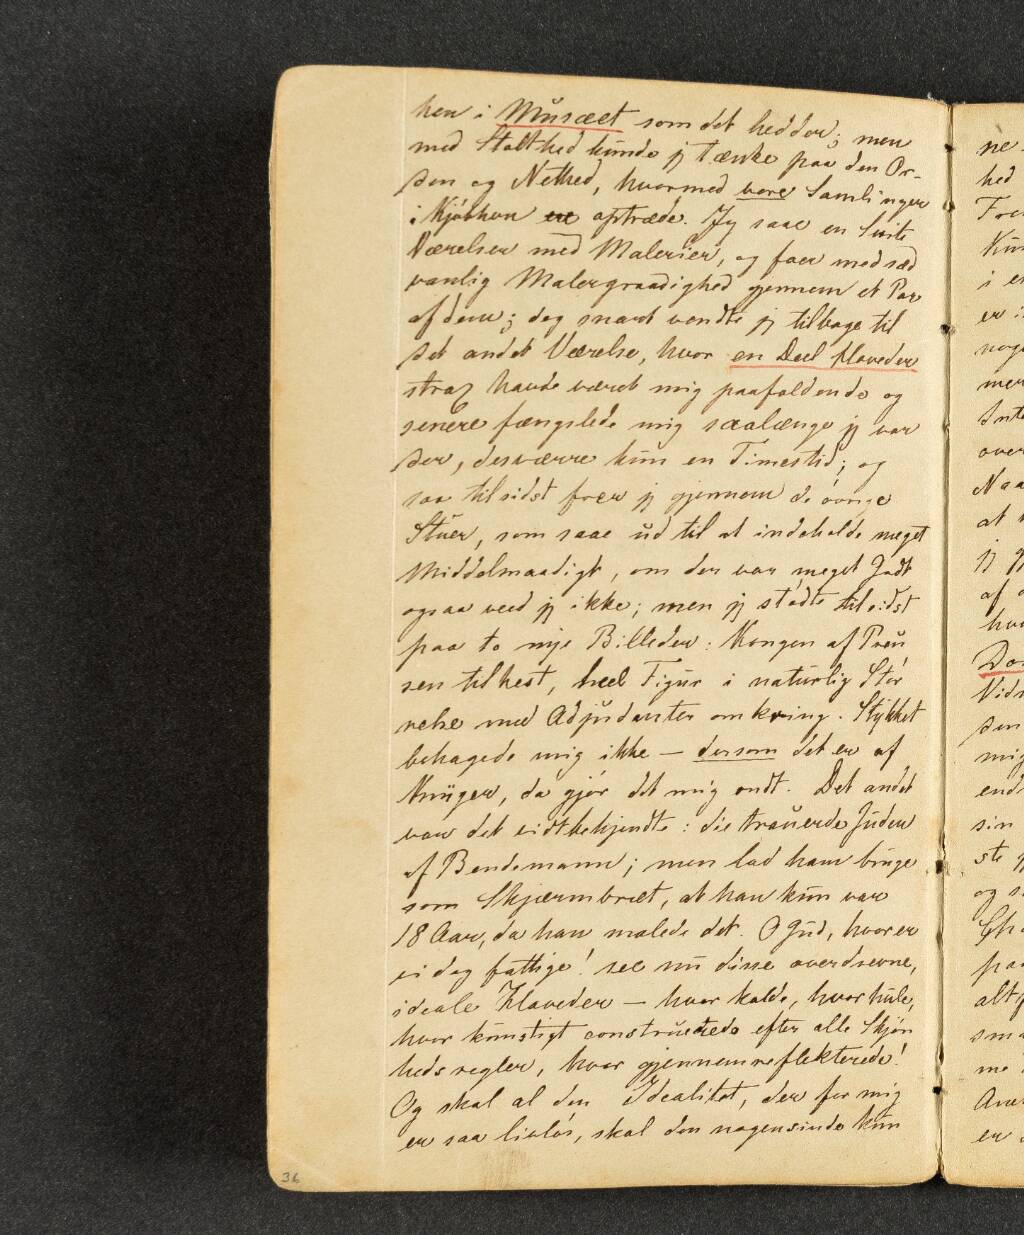 hen i Musæet som det hedder; men
med Stolthed kunde jg tænke paa den Or-
den og Nethed, hvormed vore Samlinger
i Kjøbhvn optræde. Jg saae en Suite
Værelser med Malerier, og foer med sæd
vanlig Malergraadighed gjennem et Par
af dem; dog snart vendte jg tilbage til
det andet Værelse, hvor en Deel Hoveder
strax havde været mig paafaldende og
senere fængslede mig saalænge jg var
der, desværre kun en Timestid; og
saa tilsidst foer jg gjennem de øvrige
Stuer, som saae ud til at indeholde meget
Middelmaadigt, om der var meget Godt
ogsaa veed jg ikke; men jg stødte tilsidst
paa to nye Billeder: Kongen af Preu
sen tilhest, heel Figur i naturlig Stør
relse med Adjudanter omkring. Stykket
behagede mig ikke — dersom det er af
Krüger, da gjør det mig ondt. Det andet
var det vidtbekjendte: die trauerde Juden
af Bendemann; men lad ham bruge
som Skjærmbræt, at han kun var
18 Aar, da han malede det. O Gud, hvor er
vi dog fattige! see nu disse overdrevne,
ideale Hoveder — hvor kolde, hvor hule,
hvor kunstigt construerede efter alle Skjøn
hedsregler, hvor gjennemreflekterede!
Og skal al den Idealitet, der for mig
er saa livløs, skal den nogensinde kun
36
ne
hed
i
er
over
Naa
at
jg
af
mig
sin
ste
og
alt
er